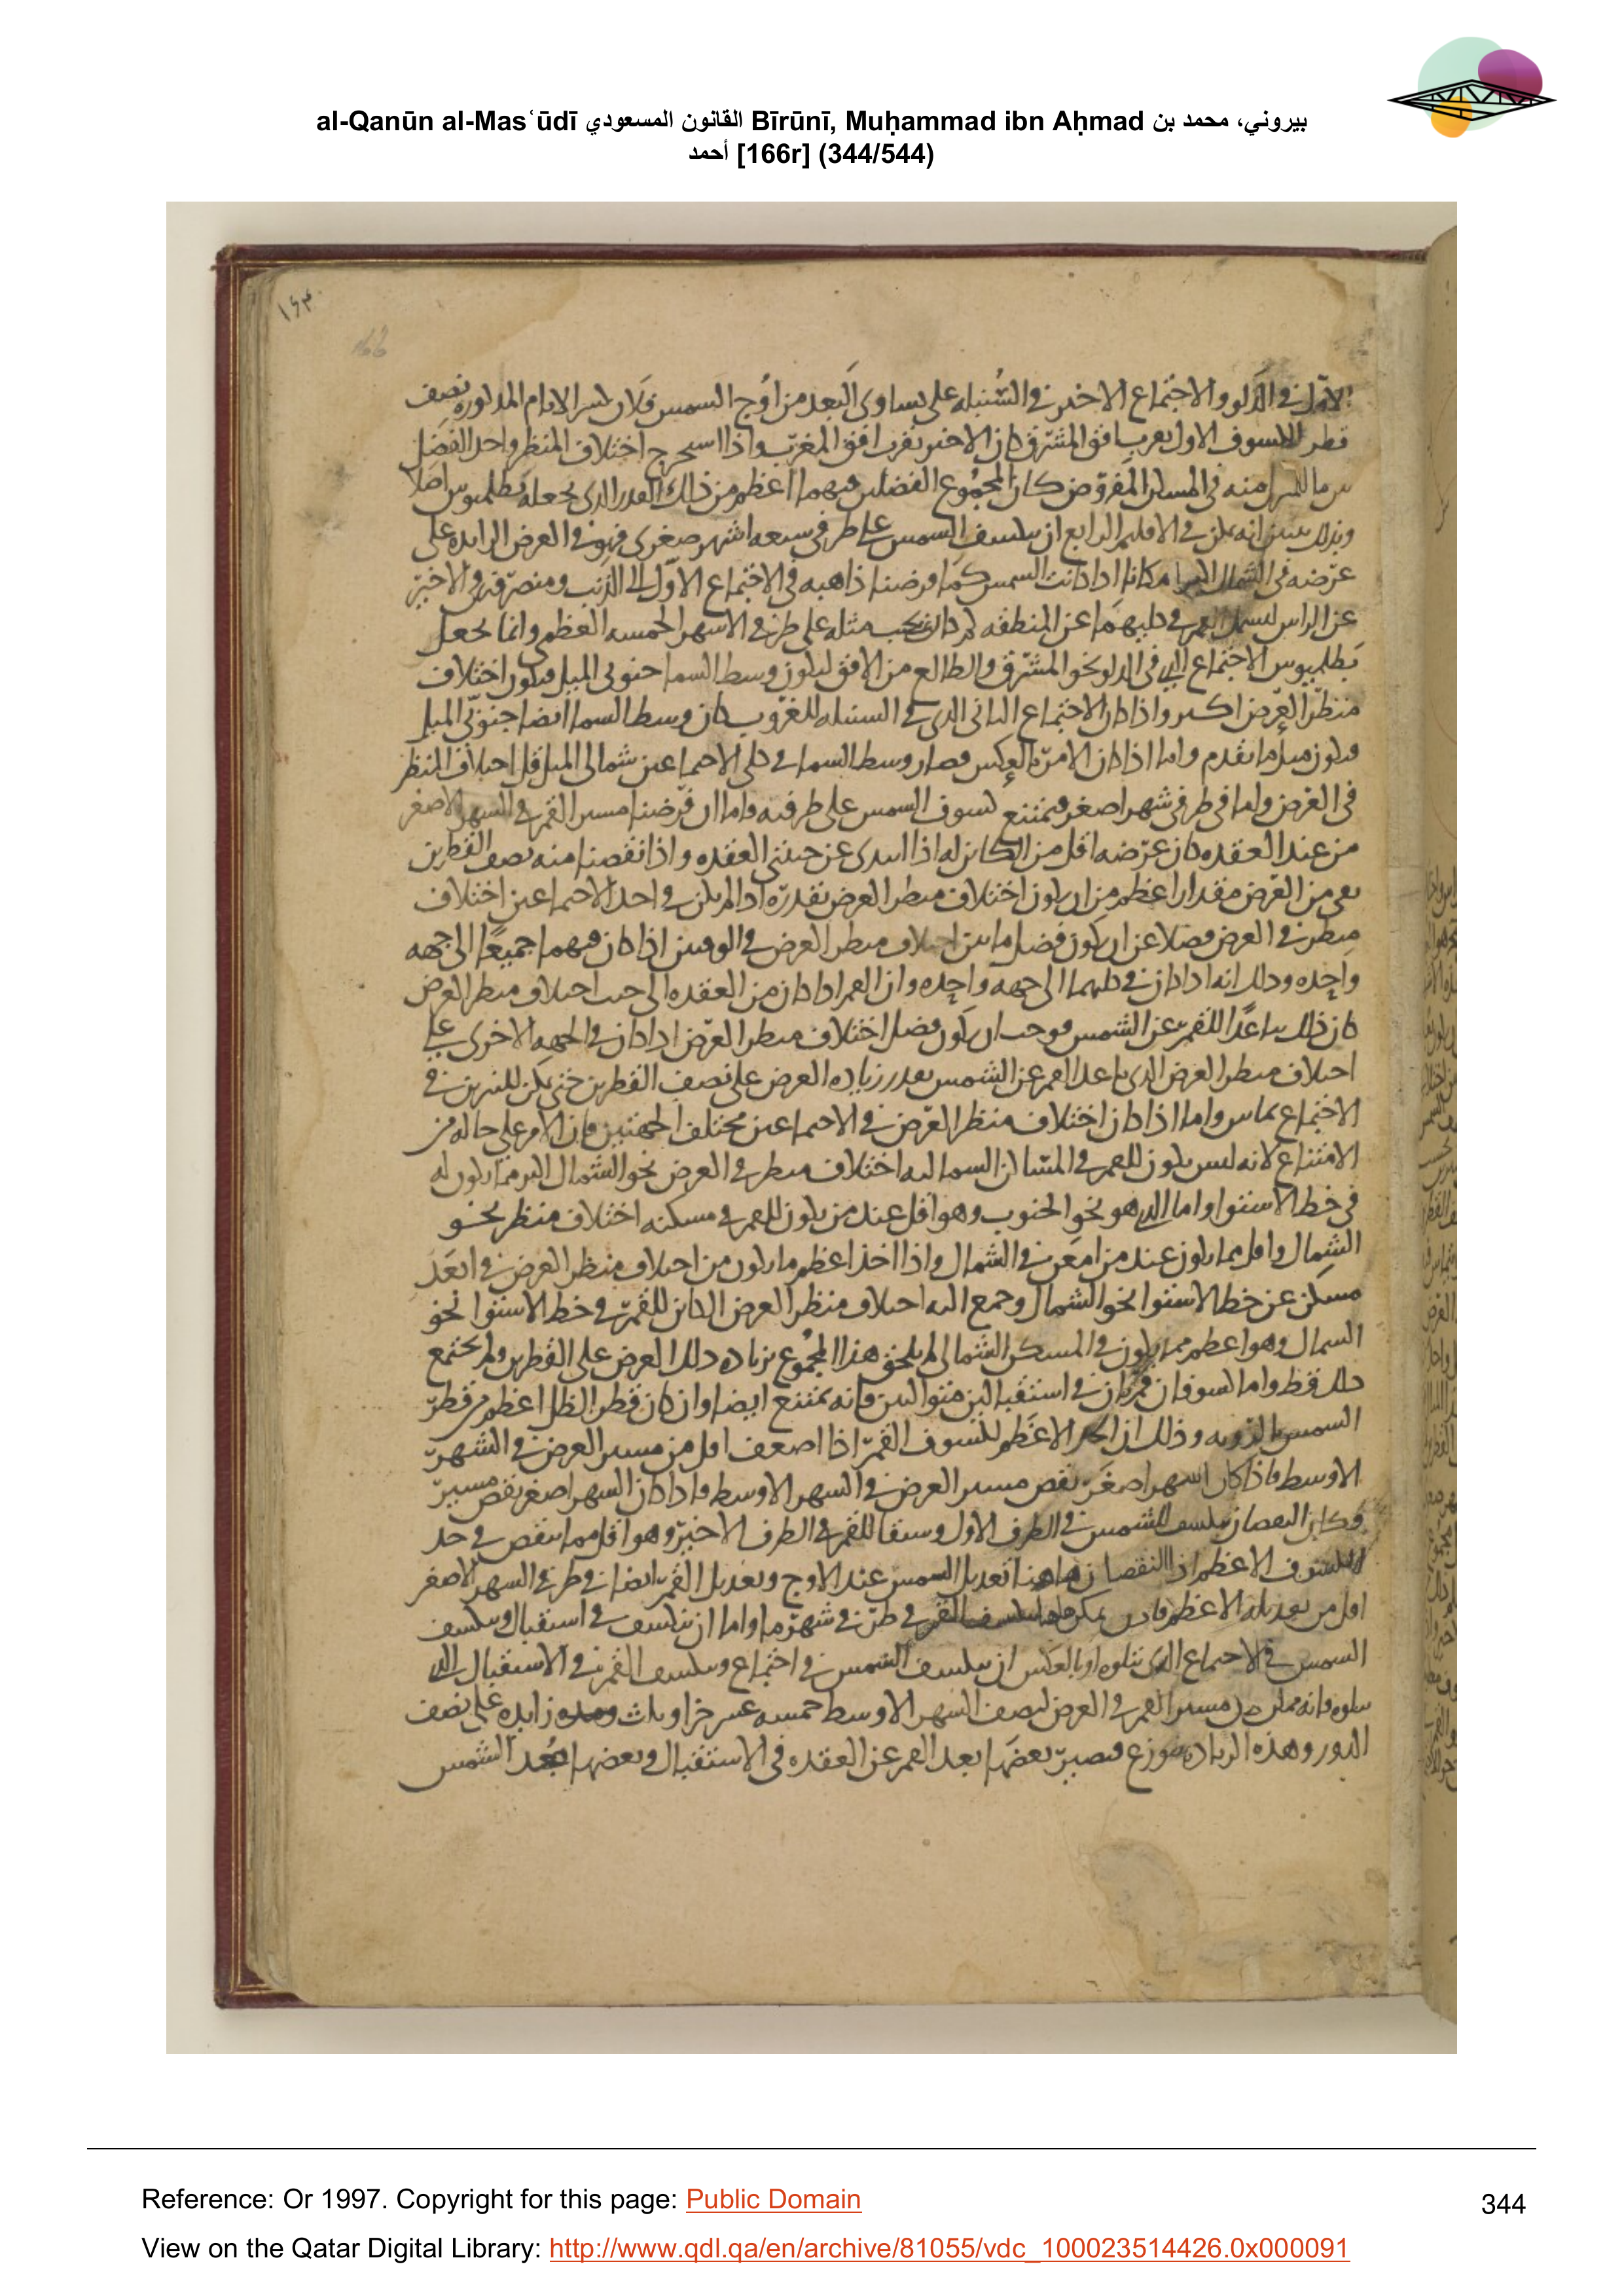 al-Qanūn al-Masʿūdī القانون المسعودي Bīrūnī, Muḥammad ibn Aḥmad بيروني، محمد بن
أحمد [166r] (344/544)
١٦٣
166
الاول في الدلو والاجتماع الاخير في السنبله على تساوى البعد من اوج الشمس فلان كسر الايام المذكوره نصف
قطر الكسوف الاول بقرب افق المشرق كان الاخير بقرب افق المغرب واذا استخرج اختلاف المنظر واحد الفضل
منه في المفروض كان المجموع الفضلين فيهما اعظم من ذلك القدر الذى جعله بطلميوس اصلا
وبذلك يتبين انه يمكن في الاقليم الرابع ان ينكسف الشمس على طرفى سبعه اشهر صغرى فهو في العرض الزايده على
عرضه في الشمال امكانا اذا كانت الشمس كما فرضنا ذاهبه في الاجتماع الاول الى الذنب ومنصرفه في الاخير
عن الراس ليشمل القمر في كليهما عن المنطقه مثله على طرفي الاشهر الخمسه العظمى وانما يجعل
بطلميوس الاجتماع الذي في الدلو نحو المشرق والطالع من الافق ليكون وسط السما جنوبى الميل فيكون اختلاف
منظر العرض اكبر واذا كان الاجتماع الثانى الذى في السنبله للغروب كان وسط السما ايضا جنوبى الميل
فيكون مثل ما تقدم واما اذا كان الامر بالعكس فصار وسط السما في كلى الاجتماعين شمالى الميل قل اختلاف المنظر
في العرض واما في طرفى شهر اصغر فيمتنع كسوف الشمس على طرفيه واما ان فرضنا مسير القمر في الشهر الاصغر
من عند العقده كان عرضه اقل من الكاين له اذا ابتدى عن جنبتى العقده واذا نقصنا منه نصف القطرين
بقى من العرض مقدارا اعظم من ان يكون اختلاف منظر العرض بقدره اذا لم يكن في احد الاجتماعين اختلاف
منظر في العرض فضلا عن ان يكون فضل ما بين اختلاف منظر العرض في الوقتين اذا كان فيهما جميعا الى جهه
واحده وذلك انه اذا كان في كليهما الى جهه واحده وان القمر اذا كان من العقده الى حيث اختلاف منظر العرض
كان ذلك مباعدا للقمر عن الشمس فوجب ان يكون فضل اختلاف منظر العرض اذا كان في الجهه الاخرى على
اختلاف منظر العرض الذى باعد القمر عن الشمس بقدر زياده العرض على نصف القطرين حتى يكن للنيرين في
الاجتماع تماس واما اذا كان اختلاف منظر العرض في الاجتماعين مختلف الجهتين فان الامر على حاله من
الامتناع لانه ليس يكون للقمر في المساكن الشماليه اختلاف منظر في العرض نحو الشمال اكبر مما يكون له
في خط الاستوا واما الذى هو نحو الجنوب وهو اقل عند من يكون للقمر في مسكنه اختلاف منظر نحو
الشمال واقل مما يكون عند من امعن في الشمال واذا اخذ اعظم ما يكون من اختلاف منظر العرض في ابعد
مسكن عن خط الاستوا نحو الشمال وجمع اليه اختلاف منظر العرض الكاين للقمر في خط الاستوا نحو
الشمال وهو اعظم مما يكون في المسكن الشمالى لم يلحق هذا المجموع بزياده ذلك العرض على القطرين ولم يجتمع
ذلك قط واما كسوفان قمريان في استقبالين متواليين فانه يمتنع ايضا وان كان قطر الظل اعظم من قطر
الشمس بالرويه وذلك ان الحد الاعظم لكسوف القمر اذا اضعف اقل من مسير العرض في الشهر
الاوسط فاذا كان الشهر اصغر نقص مسير العرض في الشهر الاوسط واذا كان الشهر اصغر نقص مسير
فكان النقصان بكسف الشمس في الطرف الاول وسبقا للقمر في الطرف الاخير وهو اقل مما ينقص في حد
الكسوف الاعظم اذ النقصان هاهنا تعديل الشمس عند الاوج وتعديل القمر ايضا في طرفي الشهر الاصغر
اقل من تعديله الاعظم فاذن القمر في طرفي شهر ما واما ان ينكسف في استقبال وينكسف
الشمس في الاجتماع الذى يتلوه او بالعكس ان ينكسف الشمس في اجتماع وينكسف القمر في الاستقبال الذى
يتلوه فانه ممكن مسير القمر في العرض لنصف الشهر الاوسط خمسه عشر جزا وثلث زايده على نصف
الدور وهذه الزياده تتوزع فيصير بعضها بعد القمر عن العقده في الاستقبال وبعضها بعد الشمس
Reference: Or 1997. Copyright for this page: Public Domain
344
View on the Qatar Digital Library: http://www.qdl.qa/en/archive/81055/vdc_100023514426.0x000091